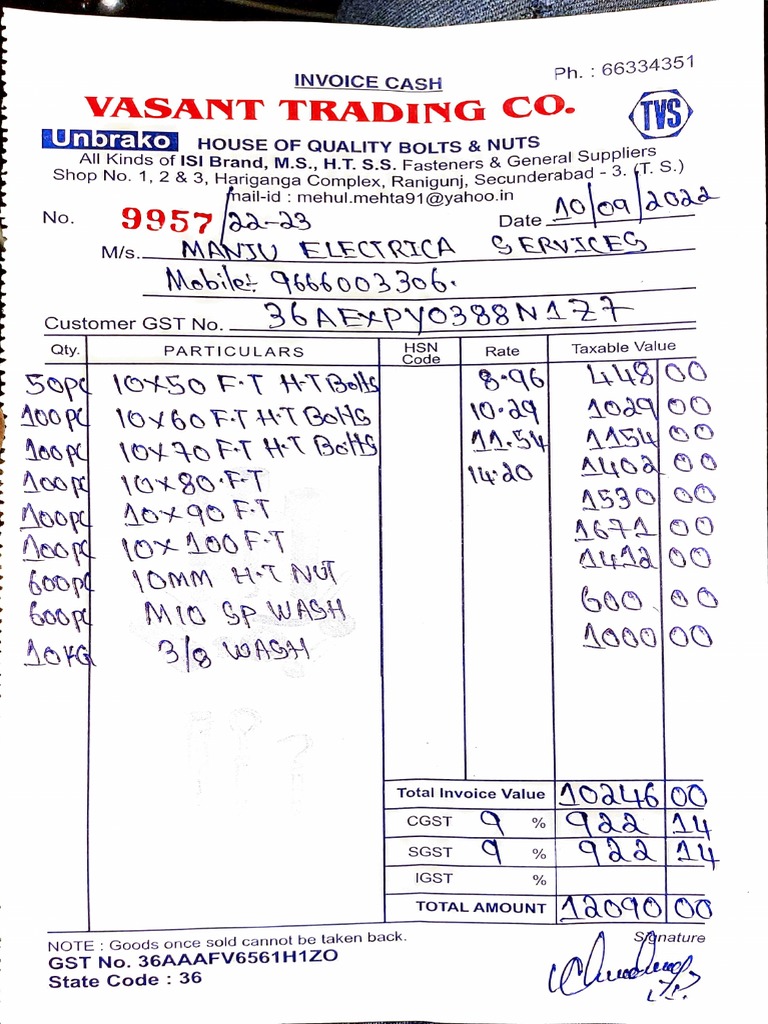 INVOICE CASH
Ph. : 66334351
VASANT TRADING CO.
TVS
Unbrako HOUSE OF QUALITY BOLTS & NUTS
All Kinds of ISI Brand, M.S., H.T. S.S. Fasteners & General Suppliers
Shop No. 1, 2 & 3, Hariganga Complex, Ranigunj, Secunderabad - 3. (T. S.)
mail-id : mehul.mehta91@yahoo.in
No. 9957/22-23 Date 10/09/2022
M/s. MANJU ELECTRICA SERVICES
Mobile: 9666003306.
Customer GST No. 36AEXPY0388N1Z7
Qty. PARTICULARS HSN Code Rate Taxable Value
50pc 10x50 F.T H.T Bolts 8.96 448 00
100pc 10x60 F.T H.T Bolts 10.29 1029 00
100pc 10x70 F.T H.T Bolts 11.54 1154 00
100pc 10x80.F.T 14.20 1402 00
100pc 10x90 F.T 1530 00
100pc 10x100 F.T 1671 00
600pc 10MM H.T NUT 1412 00
600pc M10 SP WASH 600 00
10KG 3/8 WASH 1000 00
Total Invoice Value 10246 00
CGST 9 % 922 14
SGST 9 % 922 14
IGST %
TOTAL AMOUNT 12090 00
NOTE : Goods once sold cannot be taken back.
Signature
GST No. 36AAAFV6561H1ZO
State Code : 36